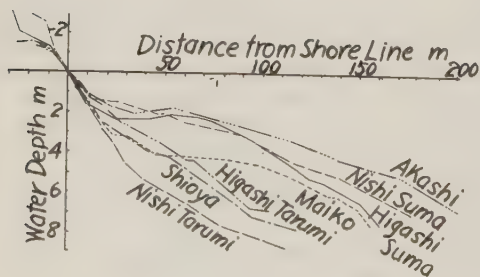 -2
Distance from Shore Line m
50
100
150
200
Water Depth m
2
4
6
8
Akashi
Nishi Suma
Higashi Suma
Maiko
Higashi Tarumi
Shioya
Nishi Tarumi